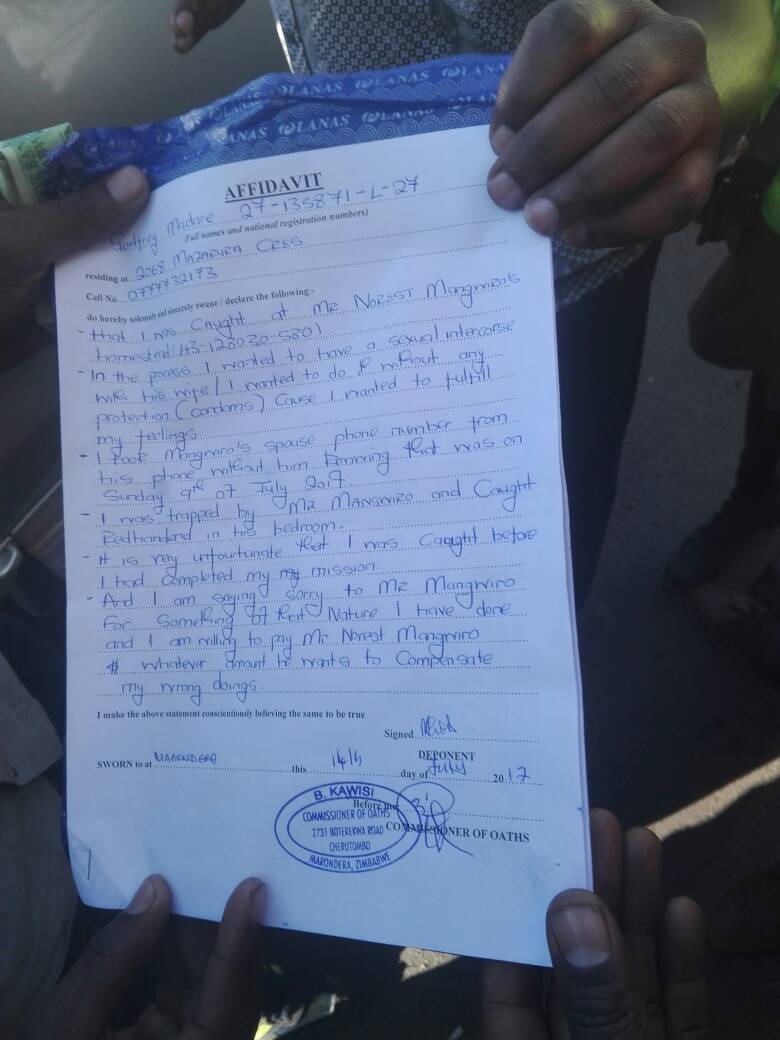 OLANAS OLANAS OLANAS
ANAS OLANAS OLANAS
AFFIDAVIT
Godfrey Madare 27-135871-L-27
(Full names and national registration numbers)
residing at 2068 MAZARURA CRSS
Cell No 0777732173
do hereby solemnly and sincerely swear / declare the following:-
- that I was Caught at MR NOREST Mangwiro's
homestead (43-128030-S80)
- In the process I wanted to have a sexual intercorse
with his wife / I wanted to do it without any
protection (condoms) Cause I wanted to fulfill
my feelings.
- I took Mangwiro's spouse phone number from
his phone without him knowing that was on
Sunday 9th of July 2017.
- I was trapped by MR MANGWIRO and Caught
Redhanded in his bedroom.
- It is very unfourtunate that I was Caught before
I had completed my my mission
- And I am saying sorry to MR Mangwiro
For Something of that Nature I have done
and I am willing to pay Mr Norest Mangwiro
$ whatever amount he wants to Compensate
my wrong doings.
I make the above statement conscientiously believing the same to be true
Signed
DEPONENT
SWORN to at MARONDERA this 14th day of July 2017
Before me
COMMISSIONER OF OATHS
B. KAWISI
COMMISSIONER OF OATHS
2731 BOTEREKWA ROAD
CHERUTOMBO
MARONDERA, ZIMBABWE